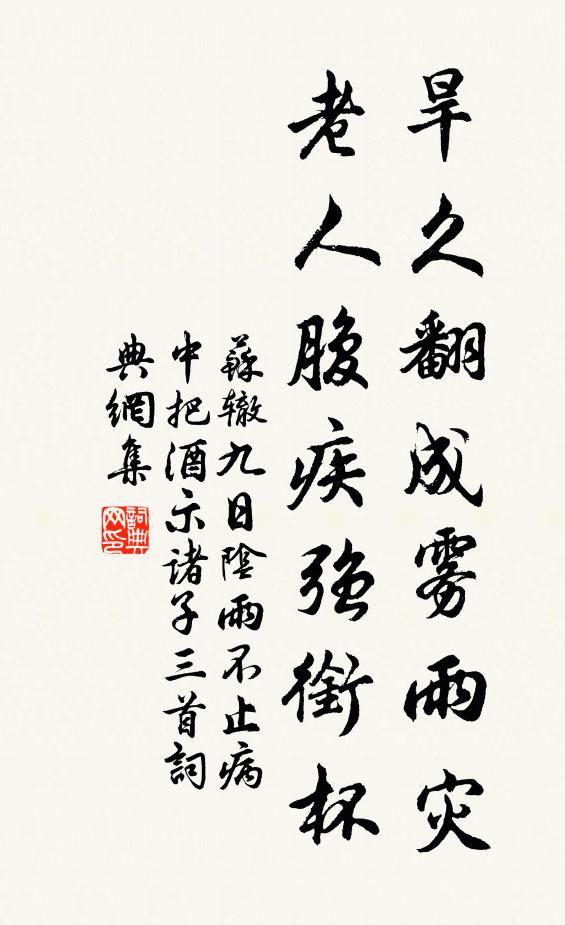 旱久翻成雾雨灾
老人腹疾强銜杯
蘇辙九日陰雨不止病
中把酒示諸子三首詞
典網集
詞典
网印